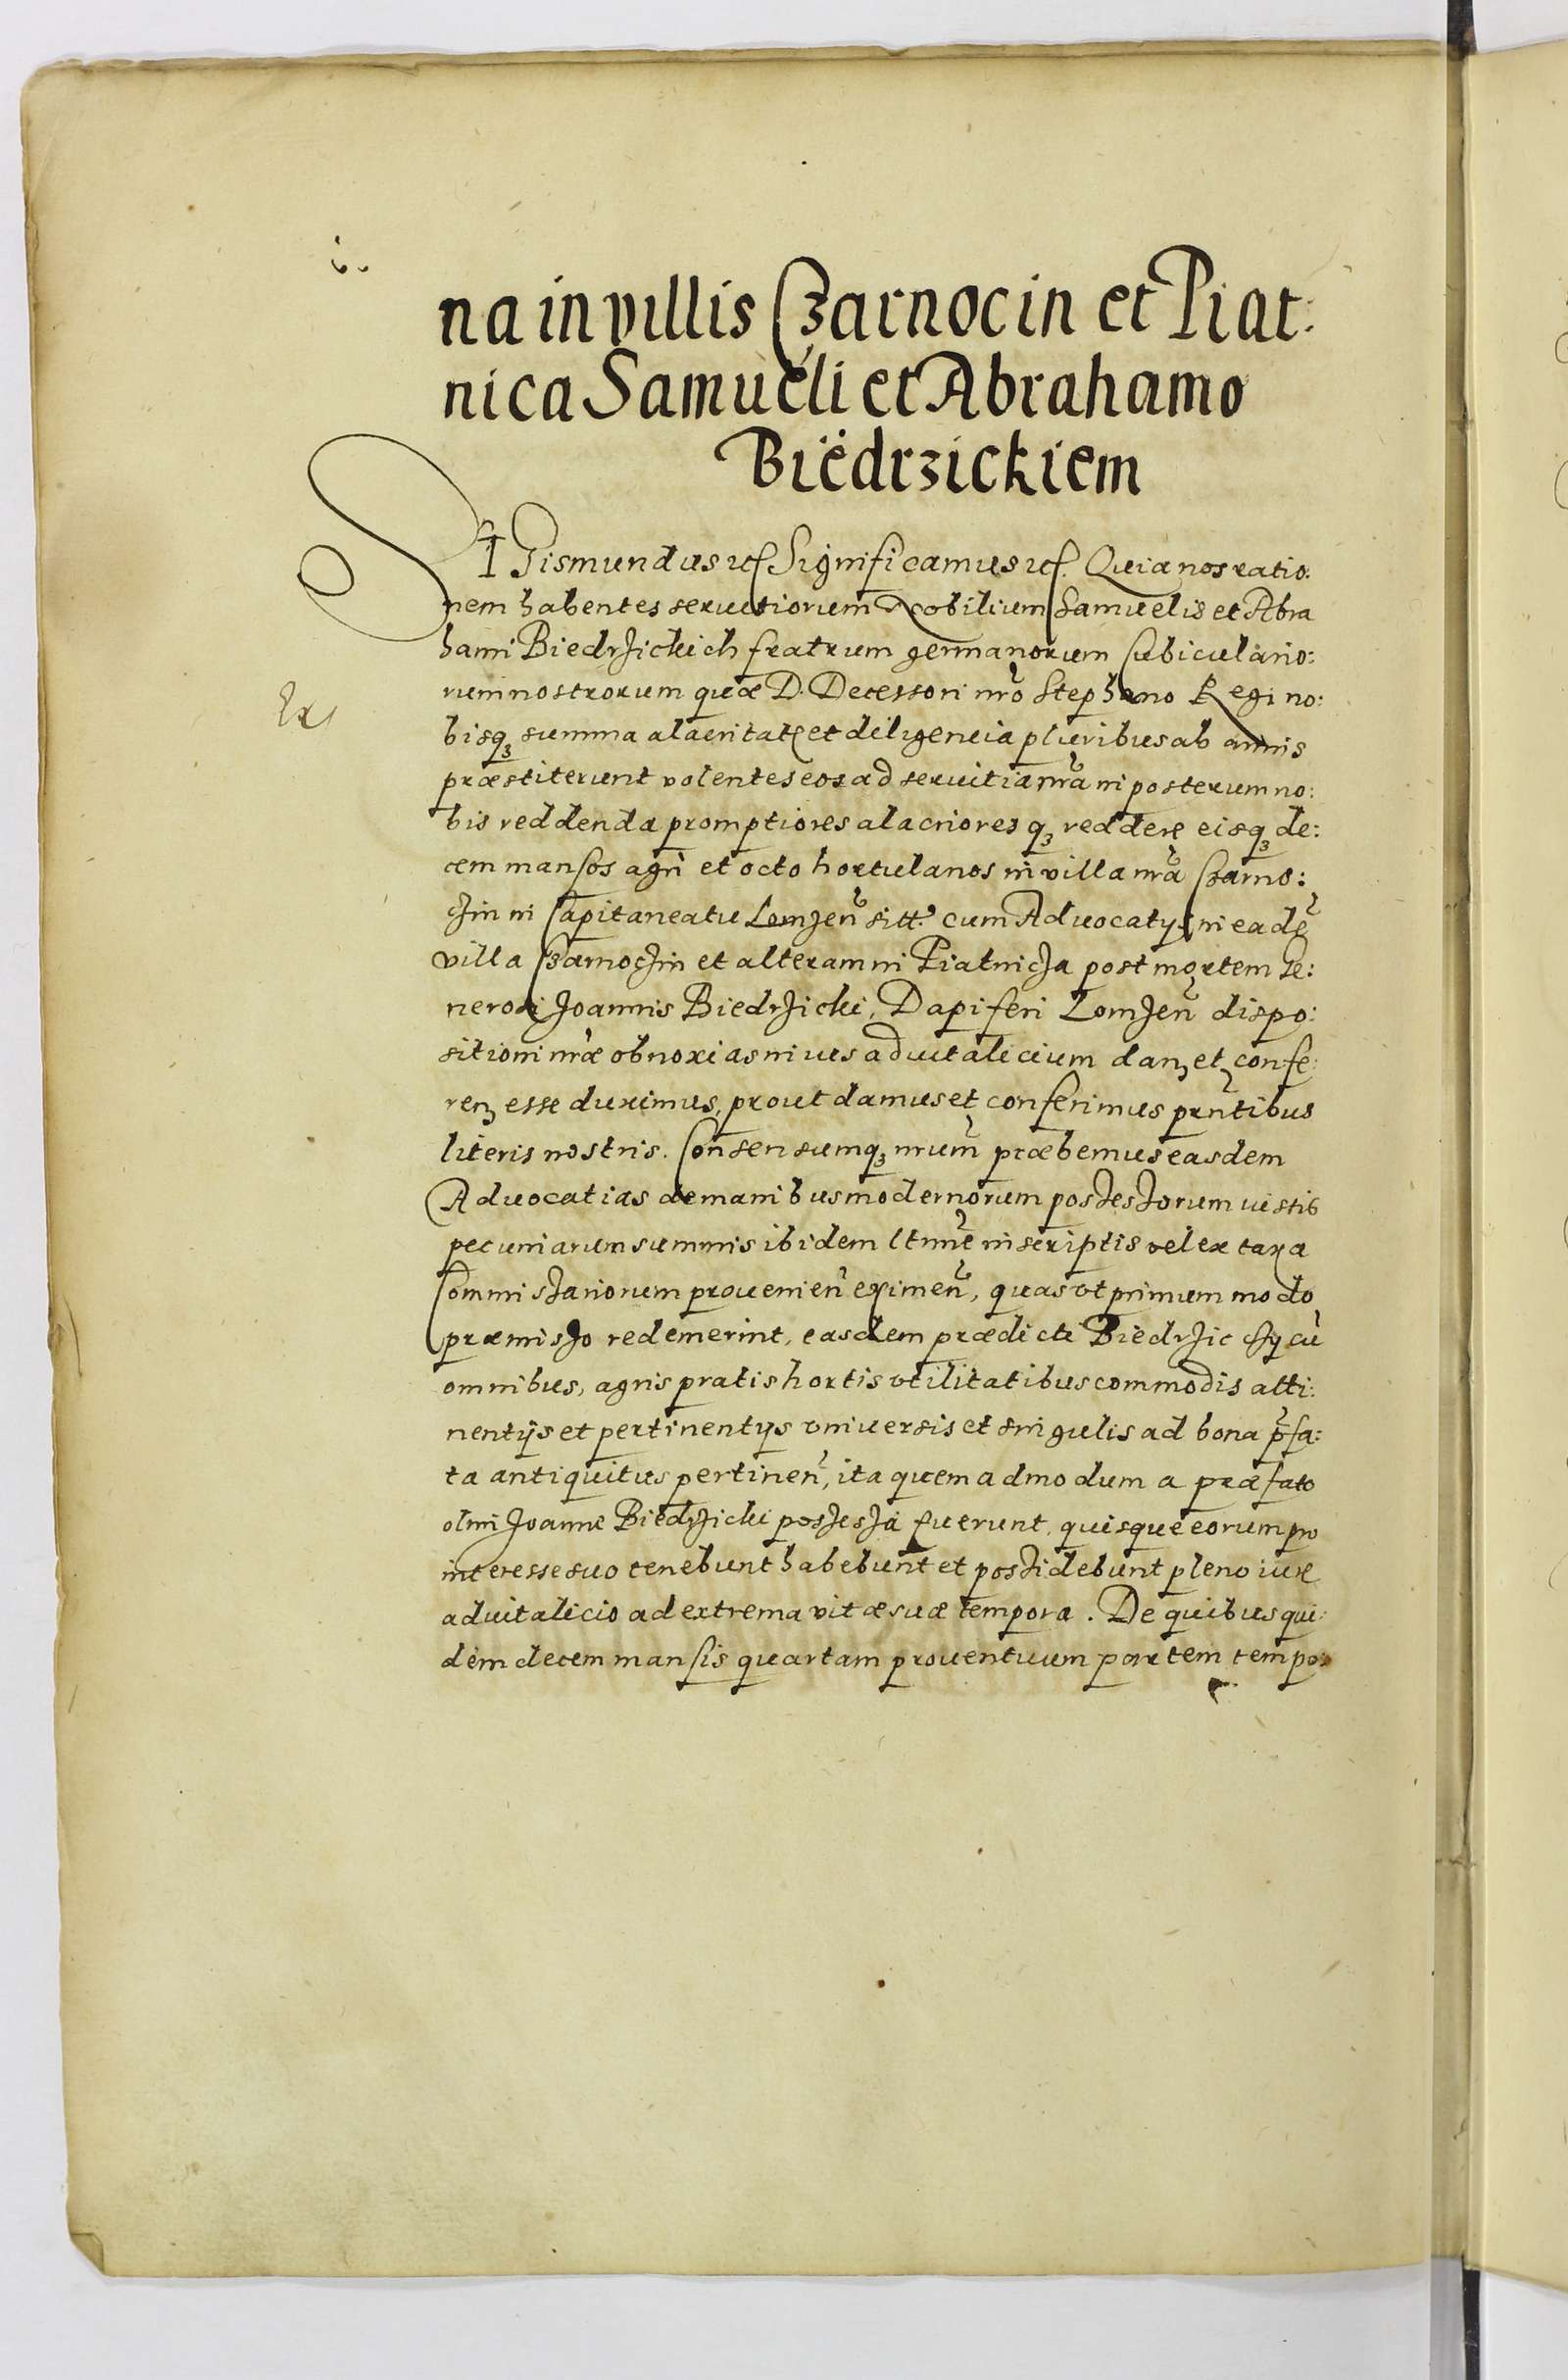 na in villis Czarnocin et Piat:
nica Samueli et Abrahamo
Biedrzickiem
SIGismundus etc Significamus etc. Quia nos ratio:
nem habentes servitiorum Nobilium Samuelis et Abra
hami Biedrzickich fratrum germanorum Cubiculario:
rum nostrorum quæ D. Decessori nro Stephano Regi no:
bisq3 summa alacritate et diligencia pluribus ab annis
præstiterunt volentes eos ad servitia nra in posterum no:
bis reddenda promptiores alacrioresq3 reddere eisq3 de:
cem mansos agri et octo hortulanos in villa nra Czarno:
czin in Capitaneatu Lomzen sitt. cum Advocatys in eade
villa Czarnoczin et alteram in Piatnicza post mortem Ge:
nerosi Joannis Biedrzicki, Dapiferi Lomzen dispo:
sitioni nræ obnoxias in ius advitalicium dan3 et confe:
ren3 esse duximus, prout damus et conferimus prntibus
literis nostris. Consensumq3 nrum præbemus easdem
Advocatias de manibus modernorum possessorum iustis
pecuniarum summis ibidem ltime inscriptis vel ex taxa
Commissariorum provenien eximen, quas vt primum modo
præmisso redemerint, easdem prædicti Biedrziczy cu
omnibus, agris pratis hortis vtilitatibus commodis atti:
nentÿs et pertinentÿs vniversis et singulis ad bona pfa:
ta antiquitus pertinen, ita quemadmodum a præfato
olim Joanne Biedrzicki possessa fuerunt, quisque eorum pro
interesse suo tenebunt habebunt et possidebunt pleno iure
advitalicio ad extrema vitæ suæ tempora. De quibus qui:
dem decem mansis quartam proventuum partem tempo: